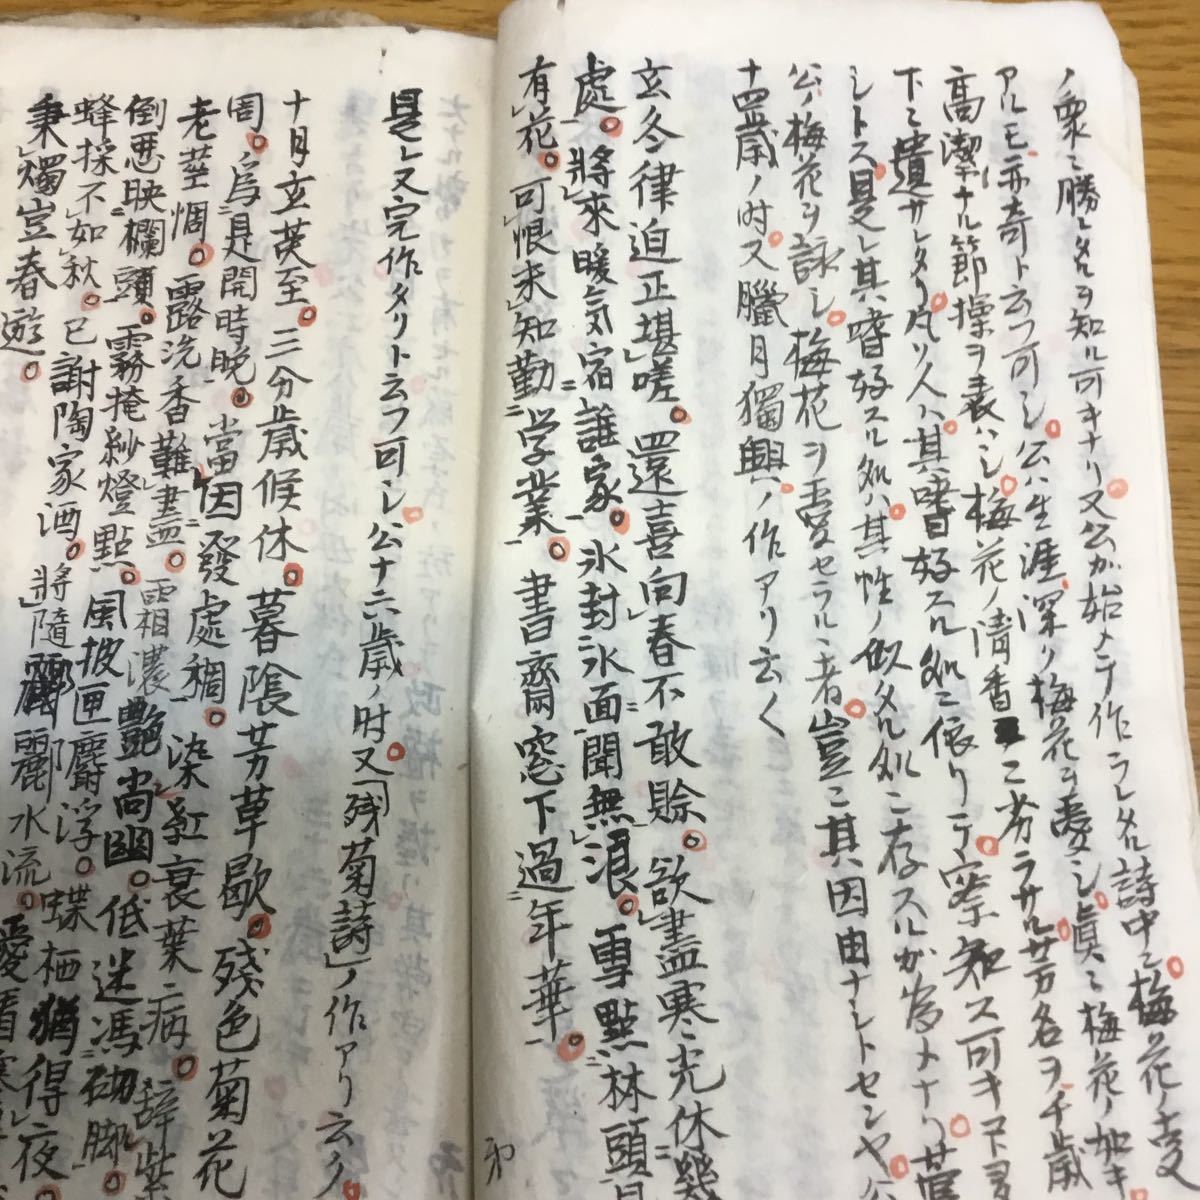 ノ衆ニ勝レタルヲ知ル可キナリ又公ガ始メテ作ラレタル詩中ニ梅花ノ
アルモ亦奇ト云フ可シ。公ハ生涯深ク梅花ヲ愛シ。眞ニ梅花ノ如キ
高潔ナル節操ヲ表ハシ梅花ノ清香ニ劣ラサル芳名ヲ千歳
下ニ遺サレタリ。凡ソ人ハ其嗜好スル処ニ依リテ察知ス可キ
シトス是レ其嗜好スル処ハ其性ノ似タル処ニ存スルガ為メナリ。
公ノ梅花ヲ詠シ。梅花ヲ愛セラルヽ者。豈ニ其因由ナシトセンヤ。公
十四歳ノ時。又臘月獨興ノ作アリ云ク
玄冬律迫正堪嗟。還喜向春不敢賒。欲盡寒光休幾
處。將來暖気宿誰家。氷封水面聞無浪。雪點林頭見
有花。可恨未知勤学業。書齋窓下過年華。
是レ又完作タリト云フ可シ公十六歳ノ時。又「残菊詩」ノ作アリ云ク
十月玄英至。三分歳候休。暮陰芳草歇。残色菊花
周。為是開時晩。當因發處稠。染紅衰葉病。辞紫
老莖惆。露洗香難盡。霜濃艶尚幽。低迷馮砌脚。
倒悪映欄頭。霧掩紗燈點。風披匣麝浮。蝶栖猶得夜
蜂採不如秋。已謝陶家酒。將随酈水流。愛看寒
秉燭豈春遊。